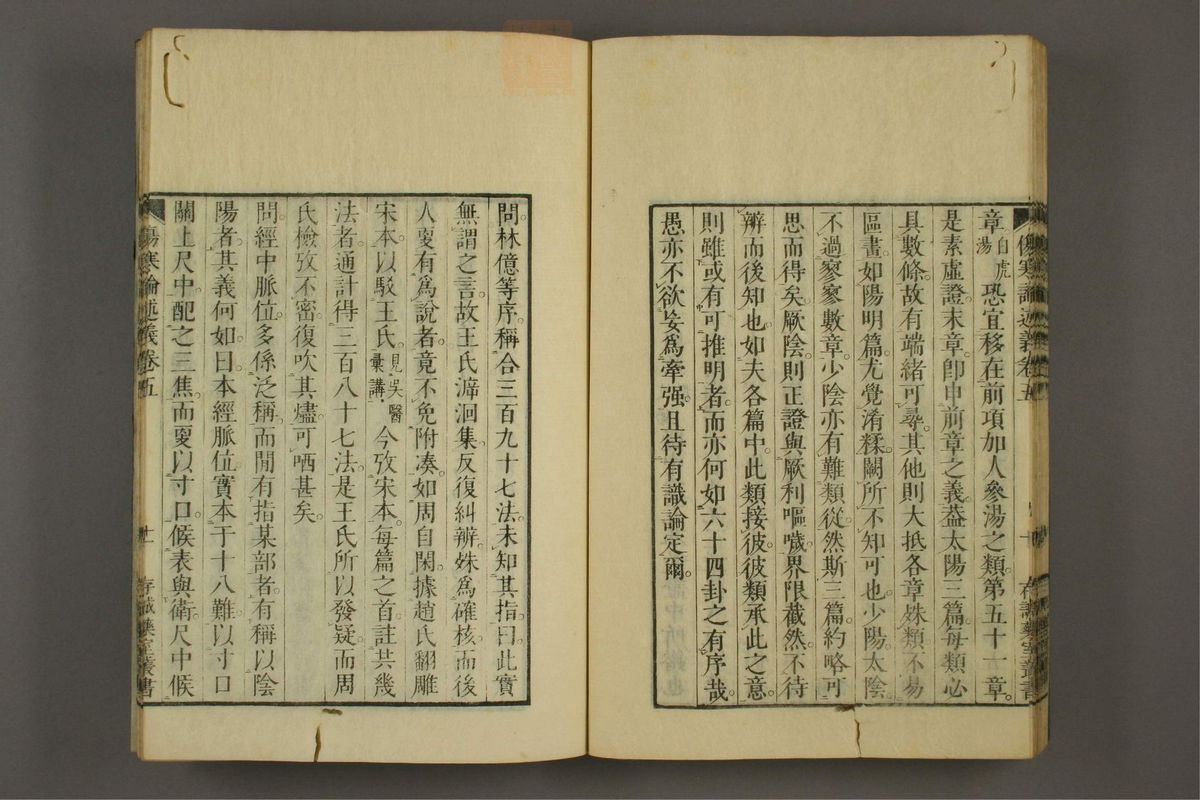 傷寒論述義卷五
十
存誠藥室叢書
章白虎湯恐宜移在前項加人參湯之類第五十一章
是素虛證末章卽申前章之義葢太陽三篇每類必
具數條故有端緒可尋其他則大抵各章姝類不易
區畫如陽明篇尤覺淆糅闕所不知可也少陽太陰
不過寥寥數章少陰亦有難類從然斯三篇約略可
思而得矣厥陰則正證與厥利嘔噦界限截然不待
辨而後知也如夫各篇中此類接彼彼類承此之意
則雖或有可推明者而亦何如六十四卦之有序哉
愚亦不欲妄爲牽强且待有識論定爾
問林億等序稱合三百九十七法未知其指曰此實
無謂之言故王氏溯洄集反復糾辨姝爲確核而後
人更有爲說者竟不免附湊如周自閑據趙氏翻雕
宋本以駁王氏見吳醫彙講今攷宋本每篇之首註共幾
法者通計得三百八十七法是王氏所以發疑而周
氏檢攷不密復吹其燼可哂甚矣
問經中脈位多係泛稱而閒有指某部者有稱以陰
陽者其義何如曰本經脈位實本于十八難以寸口
關上尺中配之三焦而更以寸口候表與衛尺中候
傷寒論述義卷五
十一
存誠藥室叢書